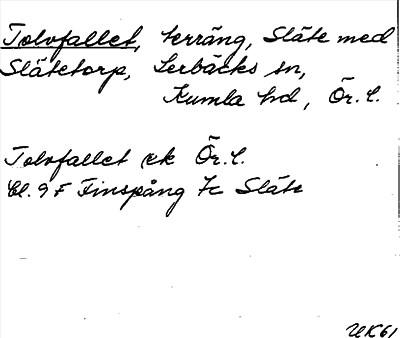 Tolvfallet, terräng, Släte med
Slätetorp, Lerbäcks sn,
Kumla hd, Ör. l.
Tolvfallet ek Ör. l.
Bl. 9 F Finspång 7c Släte
UK61